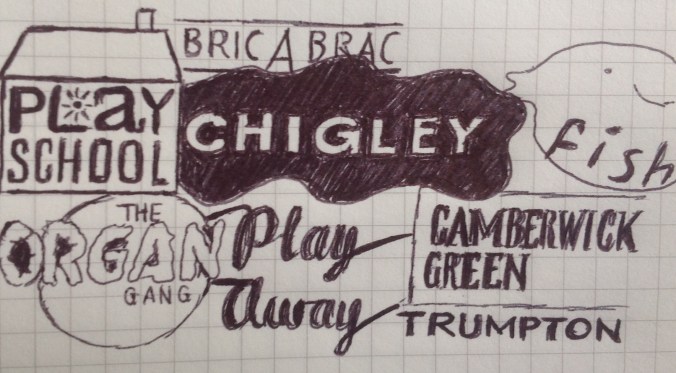 BRIC A BRAC
PLaY
SCHOOL
CHIGLEY
fish
THE
ORGAN
GANG
Play
Away
CAMBERWICK
GREEN
TRUMPTON